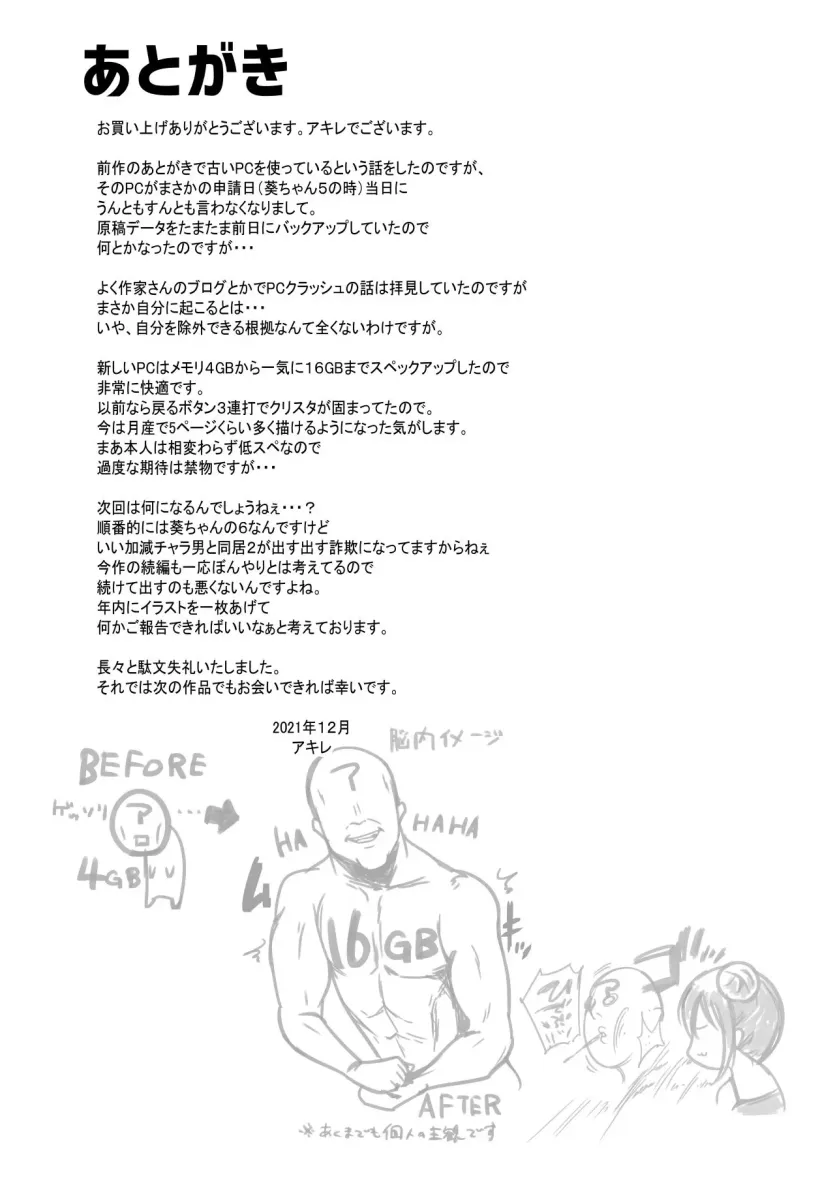 あとがき
お買い上げありがとうございます。アキレでございます。
前作のあとがきで古いPCを使っているという話をしたのですが、
そのPCがまさかの申請日(葵ちゃん5の時)当日に
うんともすんとも言わなくなりまして。
原稿データをたまたま前日にバックアップしていたので
何とかなったのですが・・・
よく作家さんのブログとかでPCクラッシュの話は拝見していたのですが
まさか自分に起こるとは・・・
いや、自分を除外できる根拠なんて全くないわけですが。
新しいPCはメモリ4GBから一気に16GBまでスペックアップしたので
非常に快適です。
以前なら戻るボタン3連打でクリスタが固まってたので。
今は月産で5ページくらい多く描けるようになった気がします。
まあ本人は相変わらず低スペなので
過度な期待は禁物ですが・・・
次回は何になるんでしょうねぇ・・・?
順番的には葵ちゃんの6なんですけど
いい加減チャラ男と同居2が出す出す詐欺になってますからねぇ
今作の続編も一応ぼんやりとは考えてるので
続けて出すのも悪くないんですよね。
年内にイラストを一枚あげて
何かご報告できればいいなぁと考えております。
長々と駄文失礼いたしました。
それでは次の作品でもお会いできれば幸いです。
2021年12月
アキレ
脳内イメージ
BEFORE
ゲッソリ
ア
・・・
4GB
ア
HA
HAHA
ム
キッ
16GB
AFTER
※あくまでも個人の主観です